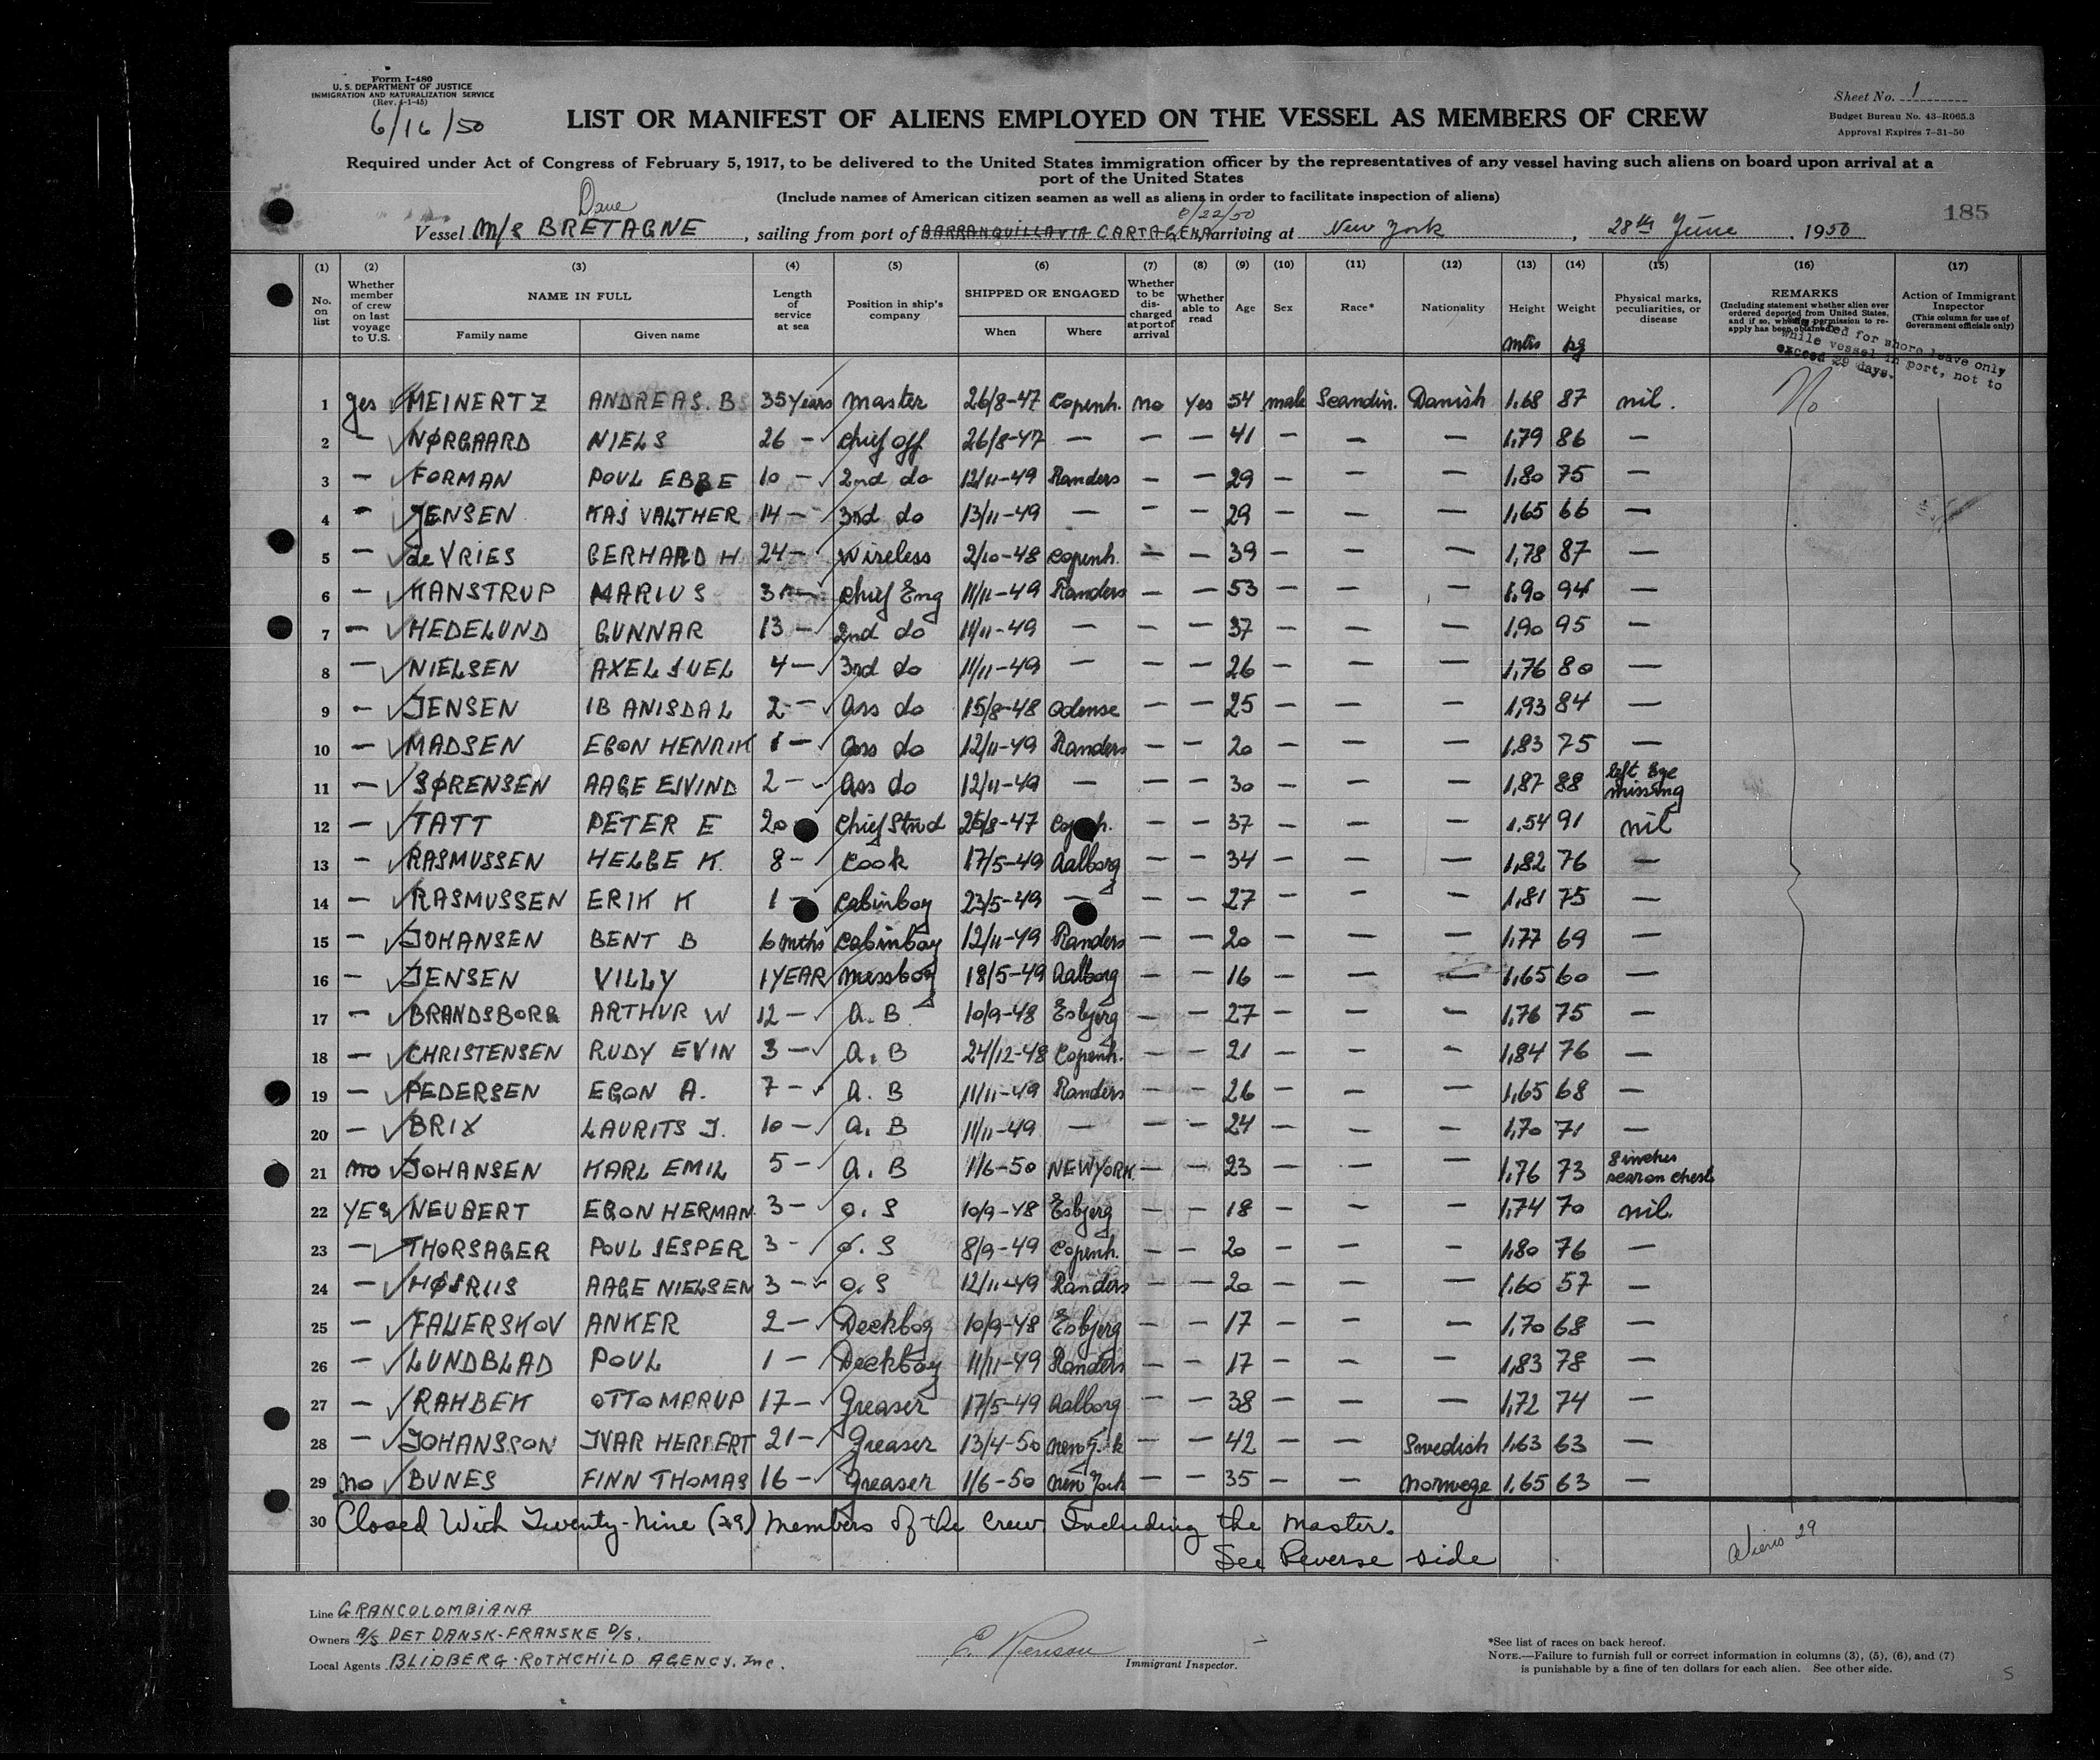 Form I-480
U. S. DEPARTMENT OF JUSTICE
IMMIGRATION AND NATURALIZATION SERVICE
(Rev. 4-1-45)
6/16/50
LIST OR MANIFEST OF ALIENS EMPLOYED ON THE VESSEL AS MEMBERS OF CREW
Sheet No. 1
Budget Bureau No. 43-R065.3
Approval Expires 7-31-50
Required under Act of Congress of February 5, 1917, to be delivered to the United States immigration officer by the representatives of any vessel having such aliens on board upon arrival at a
port of the United States
(Include names of American citizen seamen as well as aliens in order to facilitate inspection of aliens)
185
Vessel M/S BRETAGNE, sailing from port of BARRANQUILLA VIA CARTAGENA arriving at New York, 28th June, 1950
(1) (2) (3) (4) (5) (6) (7) (8) (9) (10) (11) (12) (13) (14) (15) (16) (17)
No. on list
Whether member of crew on last voyage to U.S.
NAME IN FULL
Family name
Given name
Length of service at sea
Position in ship's company
SHIPPED OR ENGAGED
When
Where
Whether to be discharged at port of arrival
Whether able to read
Age
Sex
Race*
Nationality
Height
mtrs
Weight
kg
Physical marks, peculiarities, or disease
REMARKS
(Including statement whether alien ever ordered deported from United States, and if so, whether permission to reapply has been obtained)
for shore leave only
while vessel in port, not to
exceed 29 days.
Action of Immigrant Inspector
(This column for use of Government officials only)
1 yes MEINERTZ ANDREAS. B 35 Years master 26/8-47 Copenh. no yes 54 male Scandin. Danish 1.68 87 nil. No
2 — NØRGAARD NIELS 26 — chief off 26/8-47 — — — 41 — — — 1,79 86 —
3 — FORMAN POUL EBBE 10 — 2nd do 12/11-49 Randers — — 29 — — — 1,80 75 —
4 — JENSEN KAJ VALTHER 14 — 3rd do 13/11-49 — — — 29 — — — 1,65 66 —
5 — de VRIES GERHARD H 24 — wireless 2/10-48 Copenh. — — 39 — — — 1,78 87 —
6 — KANSTRUP MARIUS — chief Eng 11/11-49 Randers — — 53 — — — 1,90 94 —
7 — HEDELUND GUNNAR 13 — 2nd do 11/11-49 — — — 37 — — — 1,90 95 —
8 — NIELSEN AXEL JUEL 4 — 3rd do 11/11-49 — — — 26 — — — 1,76 80 —
9 — JENSEN IB ANISDAL 2 — ass do 15/8-48 Odense — — 25 — — — 1,93 84 —
10 — MADSEN EGON HENRIK 1 — ass do 12/11-49 Randers — — 20 — — — 1,83 75 —
11 — SØRENSEN AAGE EJVIND 2 — ass do 12/11-49 — — — 30 — — — 1,87 88 left Eye missing
12 — TATT PETER E 20 chief Stwd 26/8-47 Copenh. — — 37 — — — 1.54 91 nil
13 — RASMUSSEN HELGE K. 8 — cook 17/5-49 Aalborg — — 34 — — — 1,82 76 —
14 — RASMUSSEN ERIK K 1 cabinboy 23/5-49 — — — 27 — — — 1,81 75 —
15 — JOHANSEN BENT B 6 mths cabinboy 12/11-49 Randers — — 20 — — — 1,77 69 —
16 — JENSEN VILLY 1 YEAR messboy 18/5-49 Aalborg — — 16 — — — 1,65 60 —
17 — BRANDSBORG ARTHUR W 12 — A. B 10/9-48 Esbjerg — — 27 — — — 1,76 75 —
18 — CHRISTENSEN RUDY EVIN 3 — A. B 24/12-48 Copenh. — — 21 — — — 1,84 76 —
19 — PEDERSEN EGON A. 7 — A. B 11/11-49 Randers — — 26 — — — 1,65 68 —
20 — BRIX LAURITS J. 10 — A. B 11/11-49 — — — 24 — — — 1,70 71 —
21 no JOHANSEN KARL EMIL 5 — A. B 1/6-50 NEWYORK. — — 23 — — — 1,76 73 8 inches scar on chest
22 YES NEUBERT EGON HERMAN 3 — O. S 10/9-48 Esbjerg — — 18 — — — 1,74 70 nil.
23 — THORSAGER POUL JESPER 3 — O. S 8/9-49 Copenh. — — 20 — — — 1,80 76 —
24 — HØJRIIS AAGE NIELSEN 3 — O. S 12/11-49 Randers — — 20 — — — 1,60 57 —
25 — FAUERSKOV ANKER 2 — Deckboy 10/9-48 Esbjerg — — 17 — — — 1,70 68 —
26 — LUNDBLAD POUL 1 — Deckboy 11/11-49 Randers — — 17 — — — 1,83 78 —
27 — RAHBEK OTTO MARUP 17 — Greaser 17/5-49 Aalborg — — 38 — — — 1,72 74 —
28 — JOHANSSON IVAR HERBERT 21 — Greaser 13/4-50 New York — — 42 — — Swedish 1,63 63 —
29 no BUNES FINN THOMAS 16 — Greaser 1/6-50 New York — — 35 — — Norwege 1,65 63 —
30 Closed With Twenty-Nine (29) Members of the Crew Including the Master.
See Reverse side
Aliens 29
Line GRANCOLOMBIANA
Owners A/S DET DANSK-FRANSKE D/S.
Local Agents BLIDBERG-ROTHCHILD AGENCY. Inc.
Immigrant Inspector.
*See list of races on back hereof.
NOTE.—Failure to furnish full or correct information in columns (3), (5), (6), and (7)
is punishable by a fine of ten dollars for each alien. See other side.